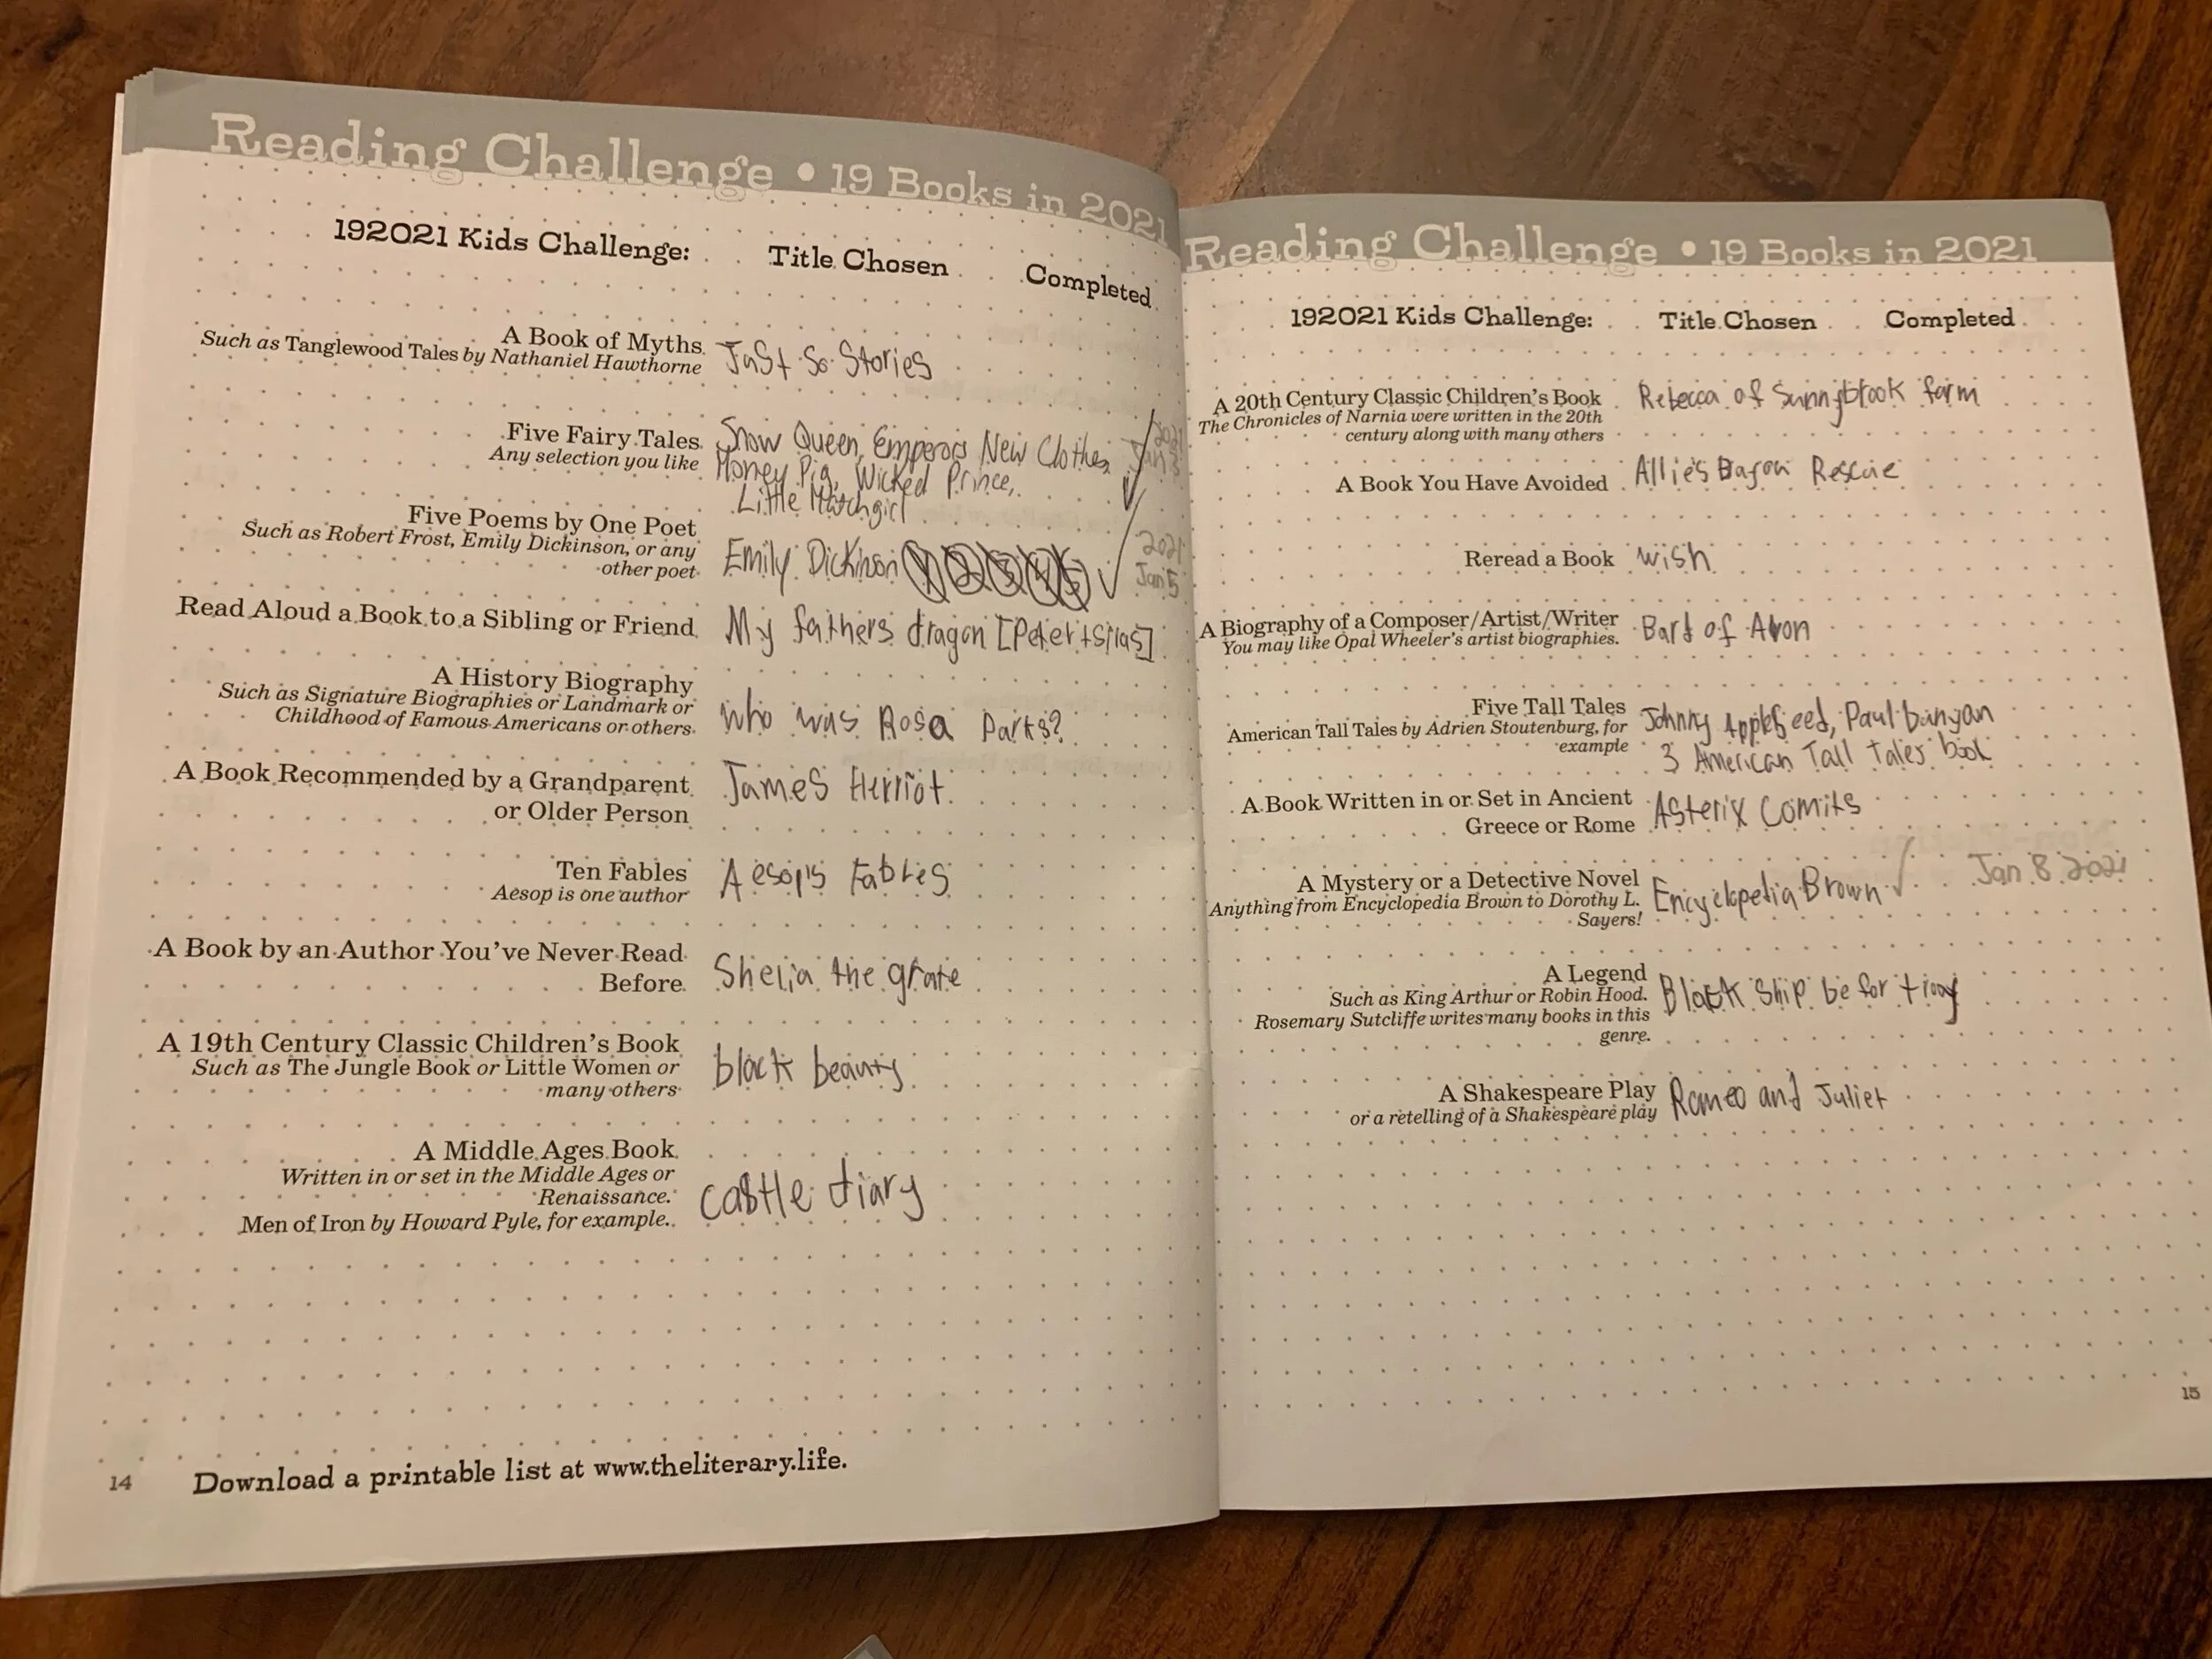 Reading Challenge • 19 Books in 2021
192021 Kids Challenge: Title Chosen Completed
A Book of Myths
Such as Tanglewood Tales by Nathaniel Hawthorne
Just So Stories
Five Fairy Tales
Any selection you like
Snow Queen, Emperors New Clothes,
Money Pig, Wicked Prince,
Little Matchgirl
2021
Jan 3
Five Poems by One Poet
Such as Robert Frost, Emily Dickinson, or any
other poet
Emily Dickinson 1 2 3 4 5
2021
Jan 5
Read Aloud a Book to a Sibling or Friend
My fathers dragon [Peter + Silas]
A History Biography
Such as Signature Biographies or Landmark or
Childhood of Famous Americans or others.
Who was Rosa Parks?
A Book Recommended by a Grandparent
or Older Person
James Herriot
Ten Fables
Aesop is one author
Aesop's Fables
A Book by an Author You've Never Read
Before
Shelia the grate
A 19th Century Classic Children's Book
Such as The Jungle Book or Little Women or
many others
black beauty
A Middle Ages Book
Written in or set in the Middle Ages or
Renaissance.
Men of Iron by Howard Pyle, for example.
castle diary
14 Download a printable list at www.theliterary.life.
Reading Challenge • 19 Books in 2021
192021 Kids Challenge: Title Chosen Completed
A 20th Century Classic Children's Book
The Chronicles of Narnia were written in the 20th
century along with many others
Rebecca of Sunnybrook farm
A Book You Have Avoided
Allie's Rescue
Reread a Book
wish
A Biography of a Composer/Artist/Writer
You may like Opal Wheeler's artist biographies.
Bard of Avon
Five Tall Tales
American Tall Tales by Adrien Stoutenburg, for
example
Johnny Appleseed, Paul bunyan
3 American Tall Tales book
A Book Written in or Set in Ancient
Greece or Rome
Asterix Comiks
A Mystery or a Detective Novel
Anything from Encyclopedia Brown to Dorothy L.
Sayers!
Encyclopedia Brown
Jan 8 2021
A Legend
Such as King Arthur or Robin Hood.
Rosemary Sutcliffe writes many books in this
genre.
Black Ship be for troy
A Shakespeare Play
or a retelling of a Shakespeare play
Romeo and Juliet
15